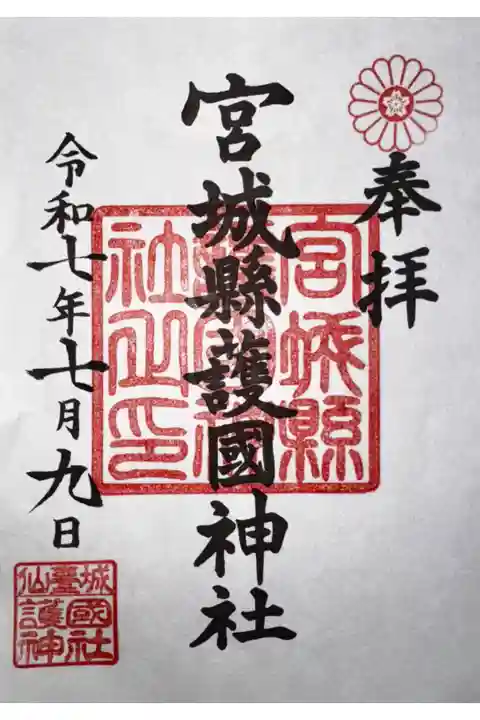 奉拝
宮城縣護國神社
宮城縣
護國神
社之印
令和七年七月九日
仙臺城
護國
神社